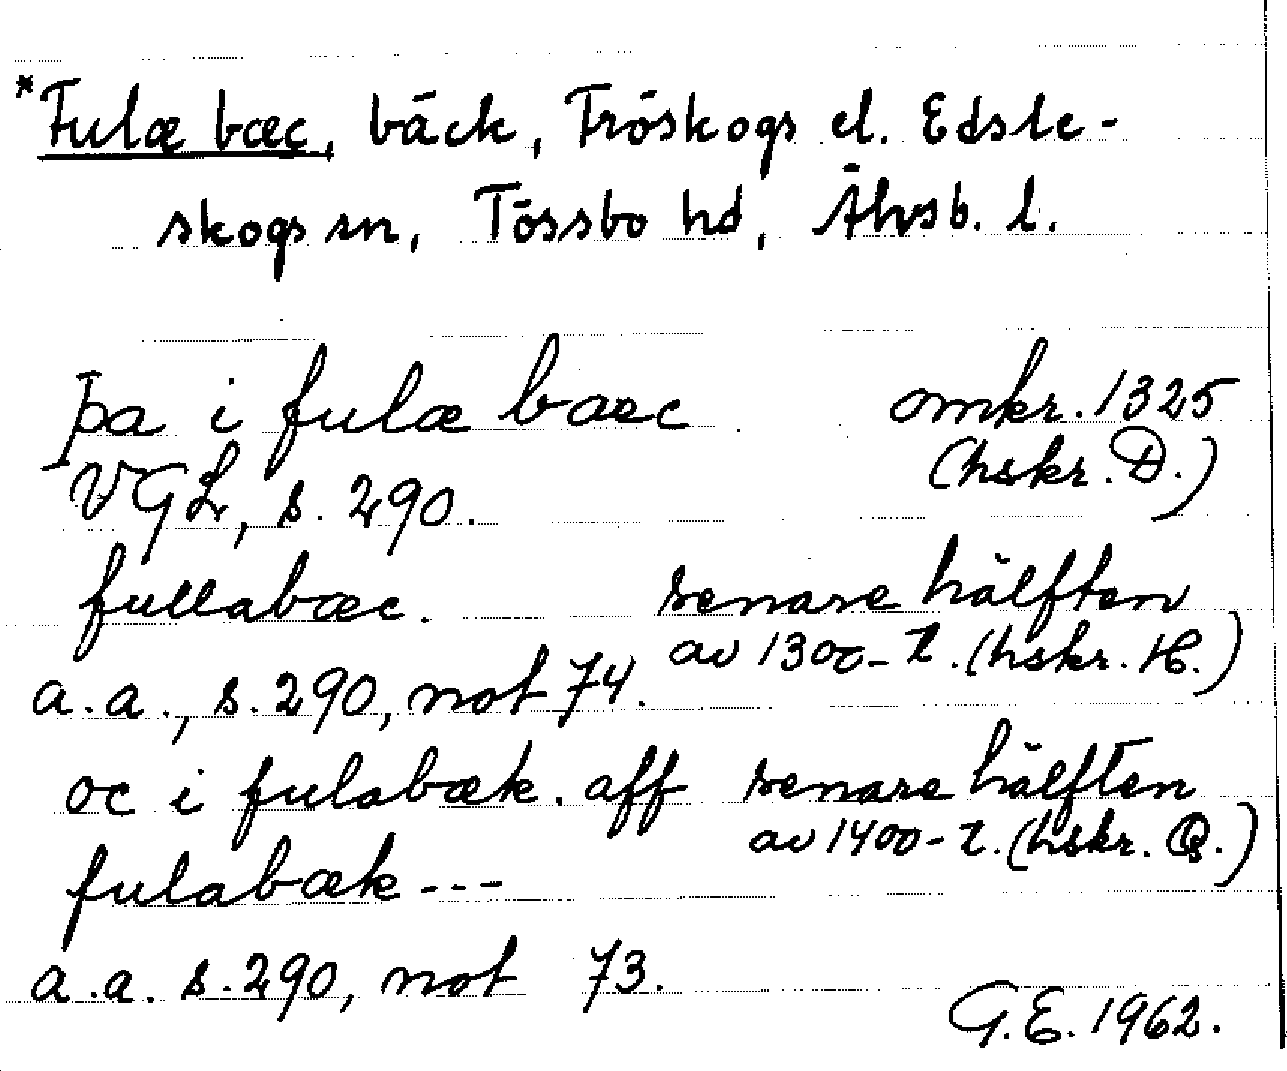 *Fulæ bæc, bäck, Fröskogs el. Edsle-
skogs sn, Tössbo hd, Älvsb. l.
þa i fulæ bæc omkr. 1325
(hskr. D.)
VGL, s. 290.
fullabæc. senare hälften
av 1300-t. (hskr. H.)
a.a., s. 290, not 74.
oc i fulabæk. aff senare hälften
av 1400-t. (hskr. Q.)
fulabæk ---
a.a. s. 290, not 73.
G.E. 1962.